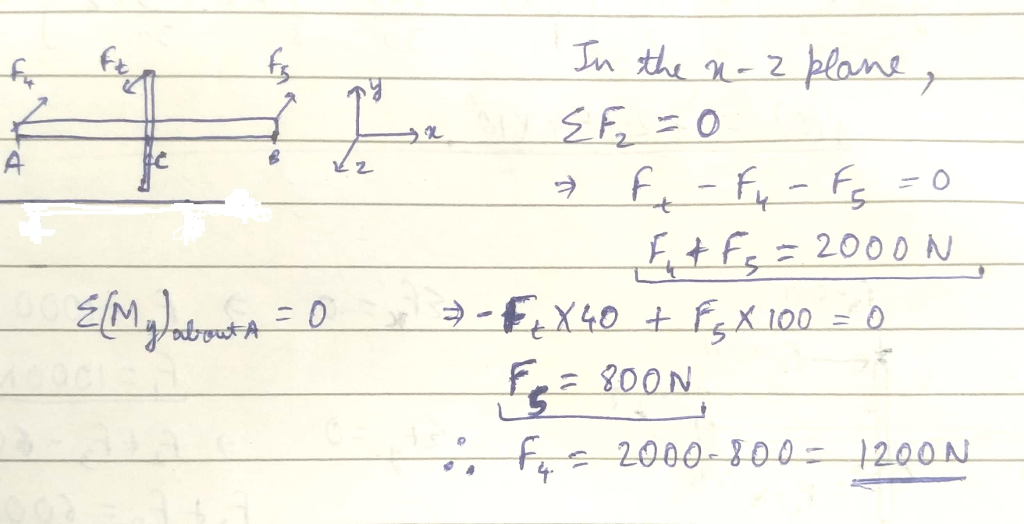 F4 Ft F5 y
x
A C B z
In the x-z plane,
ΣFz = 0
⇒ Ft - F4 - F5 = 0
F4 + F5 = 2000 N
Σ(My)about A = 0 ⇒ -Ft X 40 + F5 X 100 = 0
F5 = 800N
∴ F4 = 2000-800 = 1200N